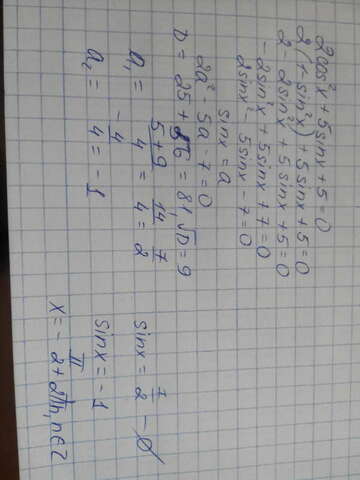 2cos²x + 5sinx + 5 = 0
2(1 - sin²x) + 5sinx + 5 = 0
2 - 2sin²x + 5sinx + 5 = 0
- 2sin²x + 5sinx + 7 = 0
2sinx² - 5sinx - 7 = 0
sinx = a
2a² - 5a - 7 = 0
D = 25 + 56 = 81, √D = 9
a₁ = 5+9/4 = 14/4 = 7/2
a₂ = -4/4 = -1
sinx = 7/2 - ∅
sinx = -1
x = - π/2 + 2πn, n∈Z